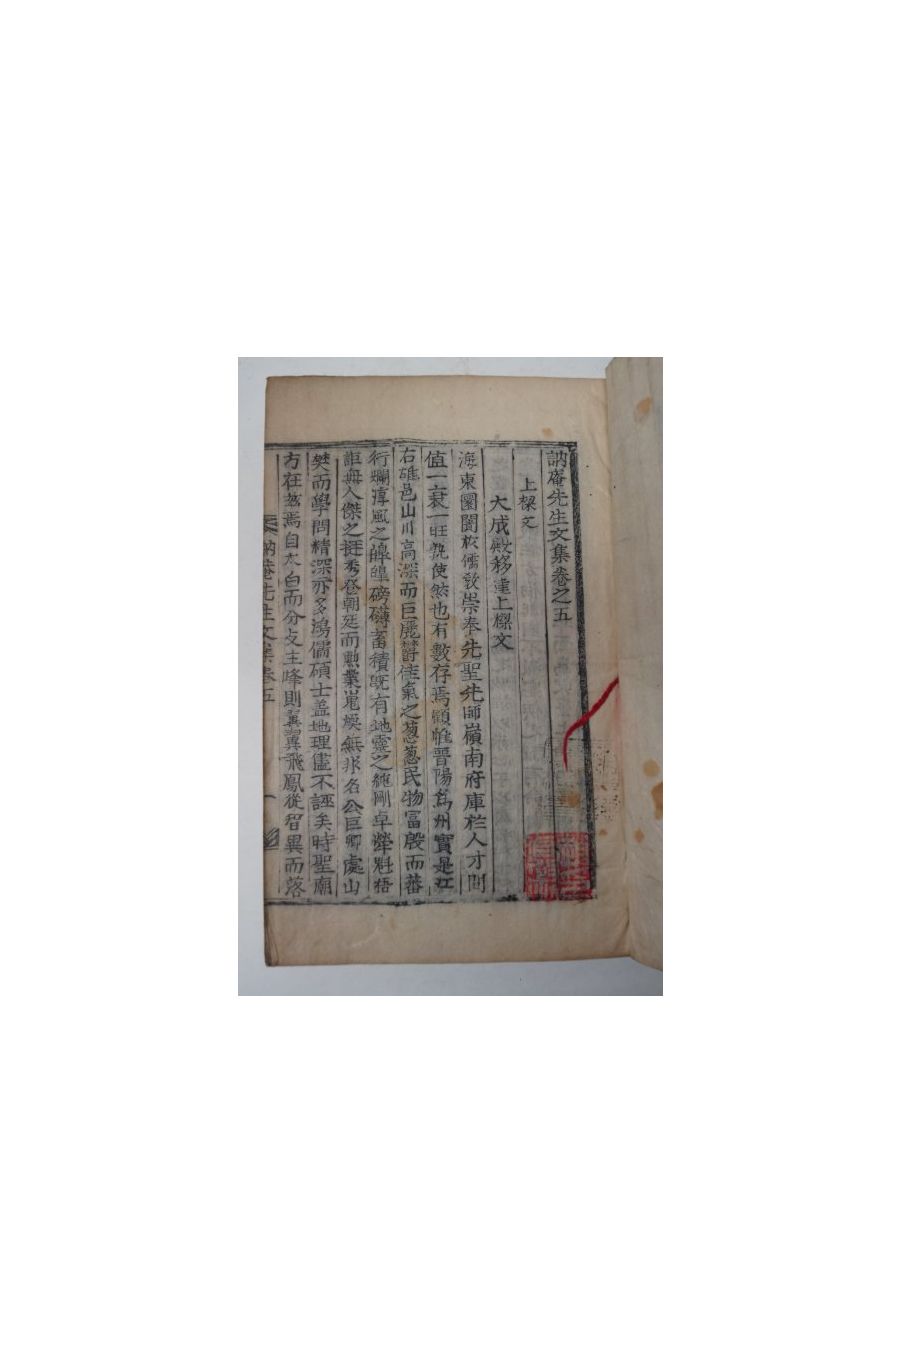 訥庵先生文集卷之五
上樑文
大成殿移建上樑文
海東國閩於儒敎崇奉先聖先師嶺南府庫於人才間
值一衰一旺孰使然也有數存焉顧惟晋陽爲州實是江
右雄邑山川高深而巨麗欝佳氣之葱葱民物富殷而蕃
行爛淳風之皥皥磅礴蓄積旣有地靈之純剛卓犖魁梧
詎無人傑之挺秀登朝廷而勳業嵬煥無非名公巨卿處山
樊而學問精深亦多鴻儒碩士盖地理儘不誣矣時聖廟
方在玆焉自太白而分支主峰則翼翼飛鳳從智異而落
訥菴先生文集卷五
一